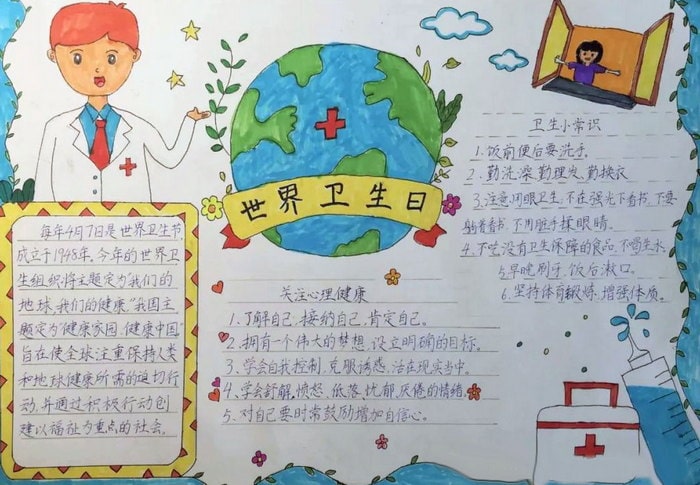 世界卫生日
每年4月7日是世界卫生节,
成立于1948年,今年的世界卫
生组织将主题定为"我们的
地球,我们的健康"我国主
题定为"健康家园,健康中国"
旨在使全球注重保持人类
和地球健康所需的迫切行
动,并通过积极行动创
建以福祉为重点的社会。
关注心理健康
1、了解自己,接纳自己,肯定自己。
2、拥有一个伟大的梦想,设立明确的目标。
3、学会自我控制,克服诱惑,活在现实当中。
4、学会舒解,愤怒、低落、忧郁、厌倦的情绪。
5、对自己要时常鼓励增加自信心。
卫生小常识
1.饭前便后要洗手。
2.勤洗澡,勤理发,勤换衣
3.注意用眼卫生,不在强光下看书,不要
躺着看书,不用脏手揉眼睛。
4.不吃没有卫生保障的食品,不喝生水
5.早晚刷牙,饭后漱口。
6.坚持体育锻炼,增强体质。